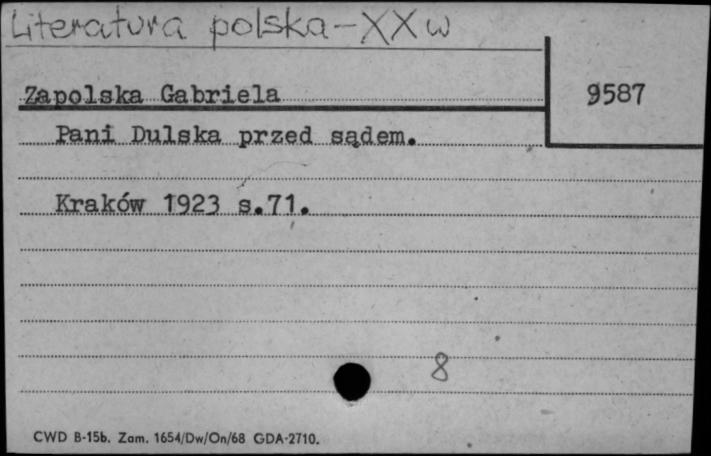 Literatura polska - XX w
Zapolska Gabriela
9587
Pani Dulska przed sądem.
Kraków 1923 s.71.
8
CWD B-15b. Zam. 1654/Dw/On/68 GDA-2710.